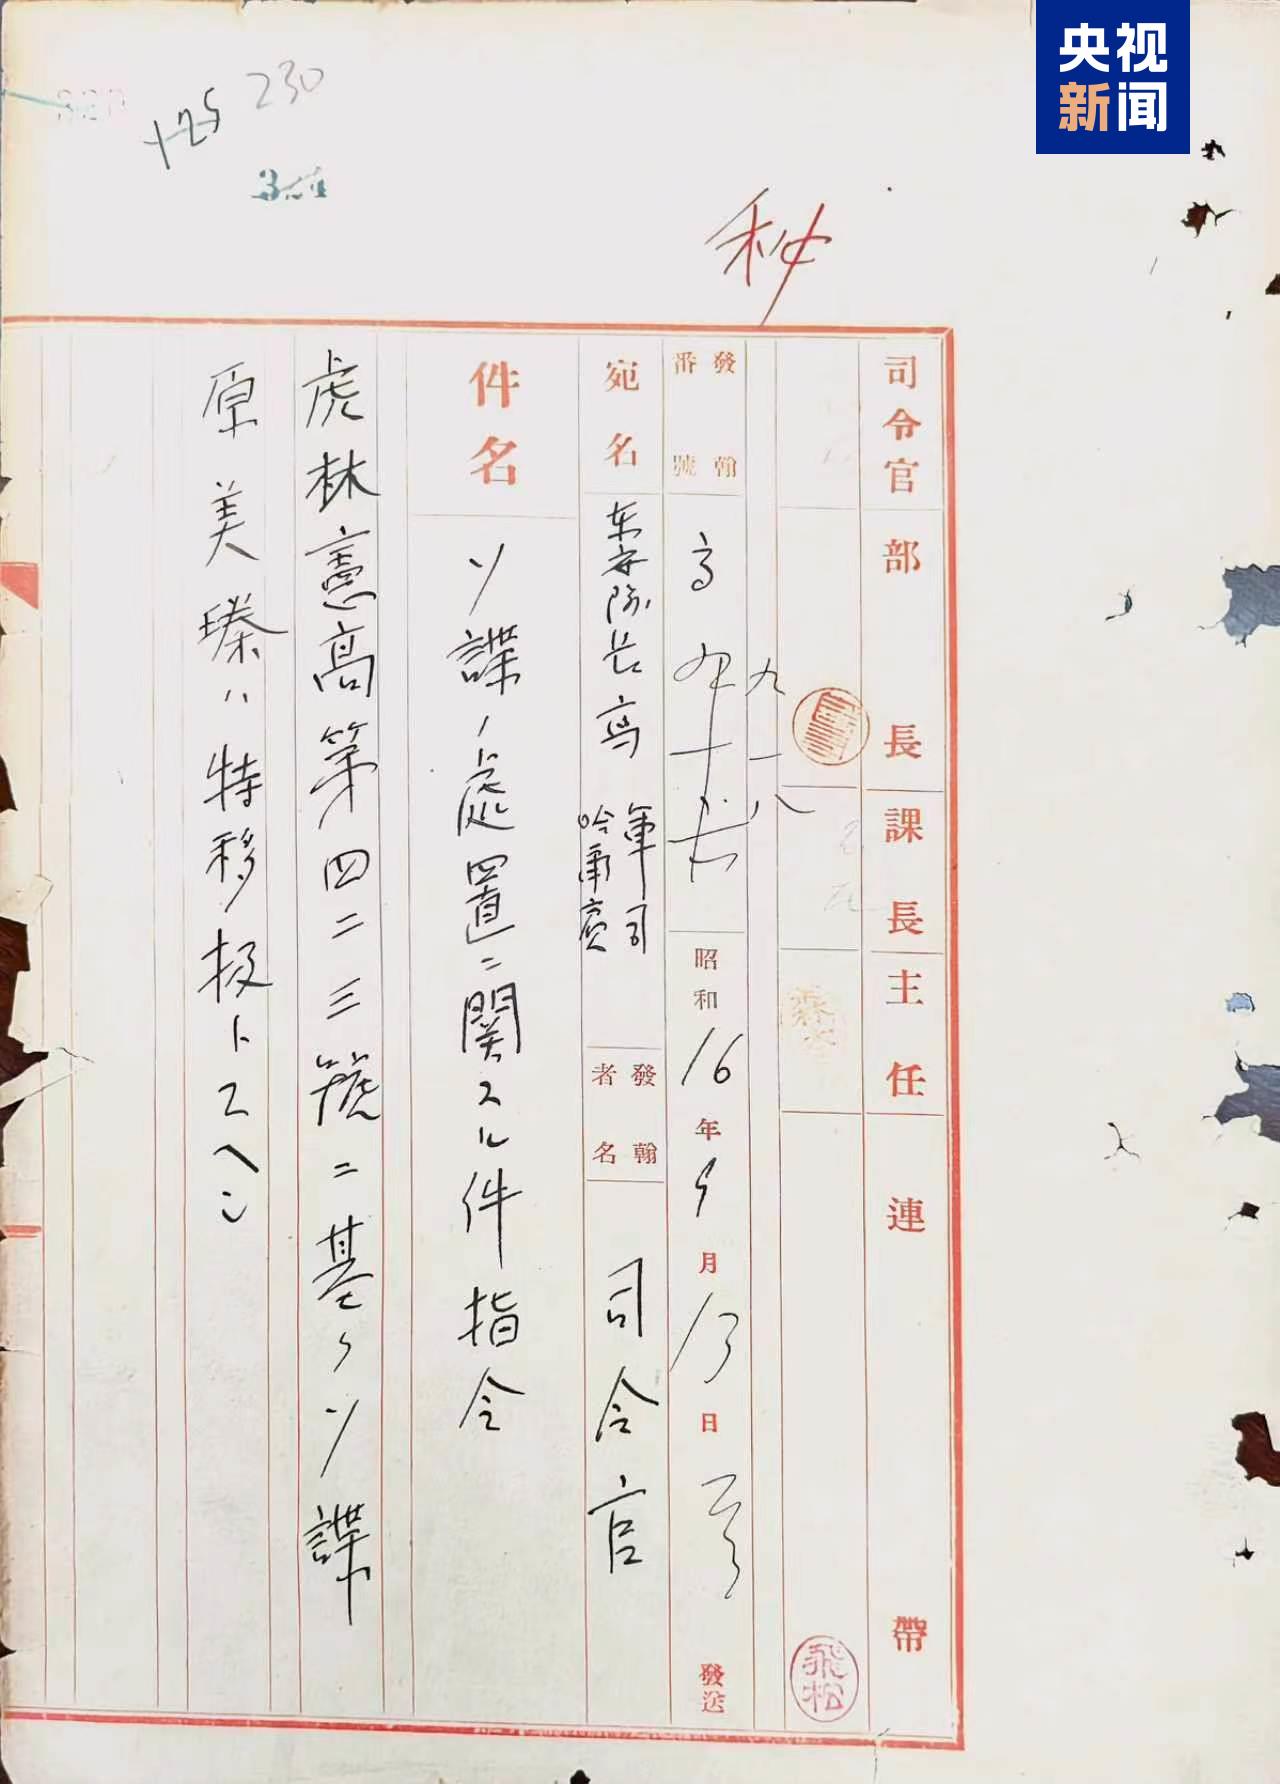 央视
新闻
230
秘
司令官
部長
課長
主任
連帶
發翰番號
高
九一八
昭和16年9月13日
發送
宛名
東安隊長 寫 軍司 哈爾賓
發翰者名
司令官
件名
ソ諜ノ處置ニ関スル件指令
虎林憲高第四二三號ニ基クソ諜
原美臻ハ特移扱トスヘシ
飛松